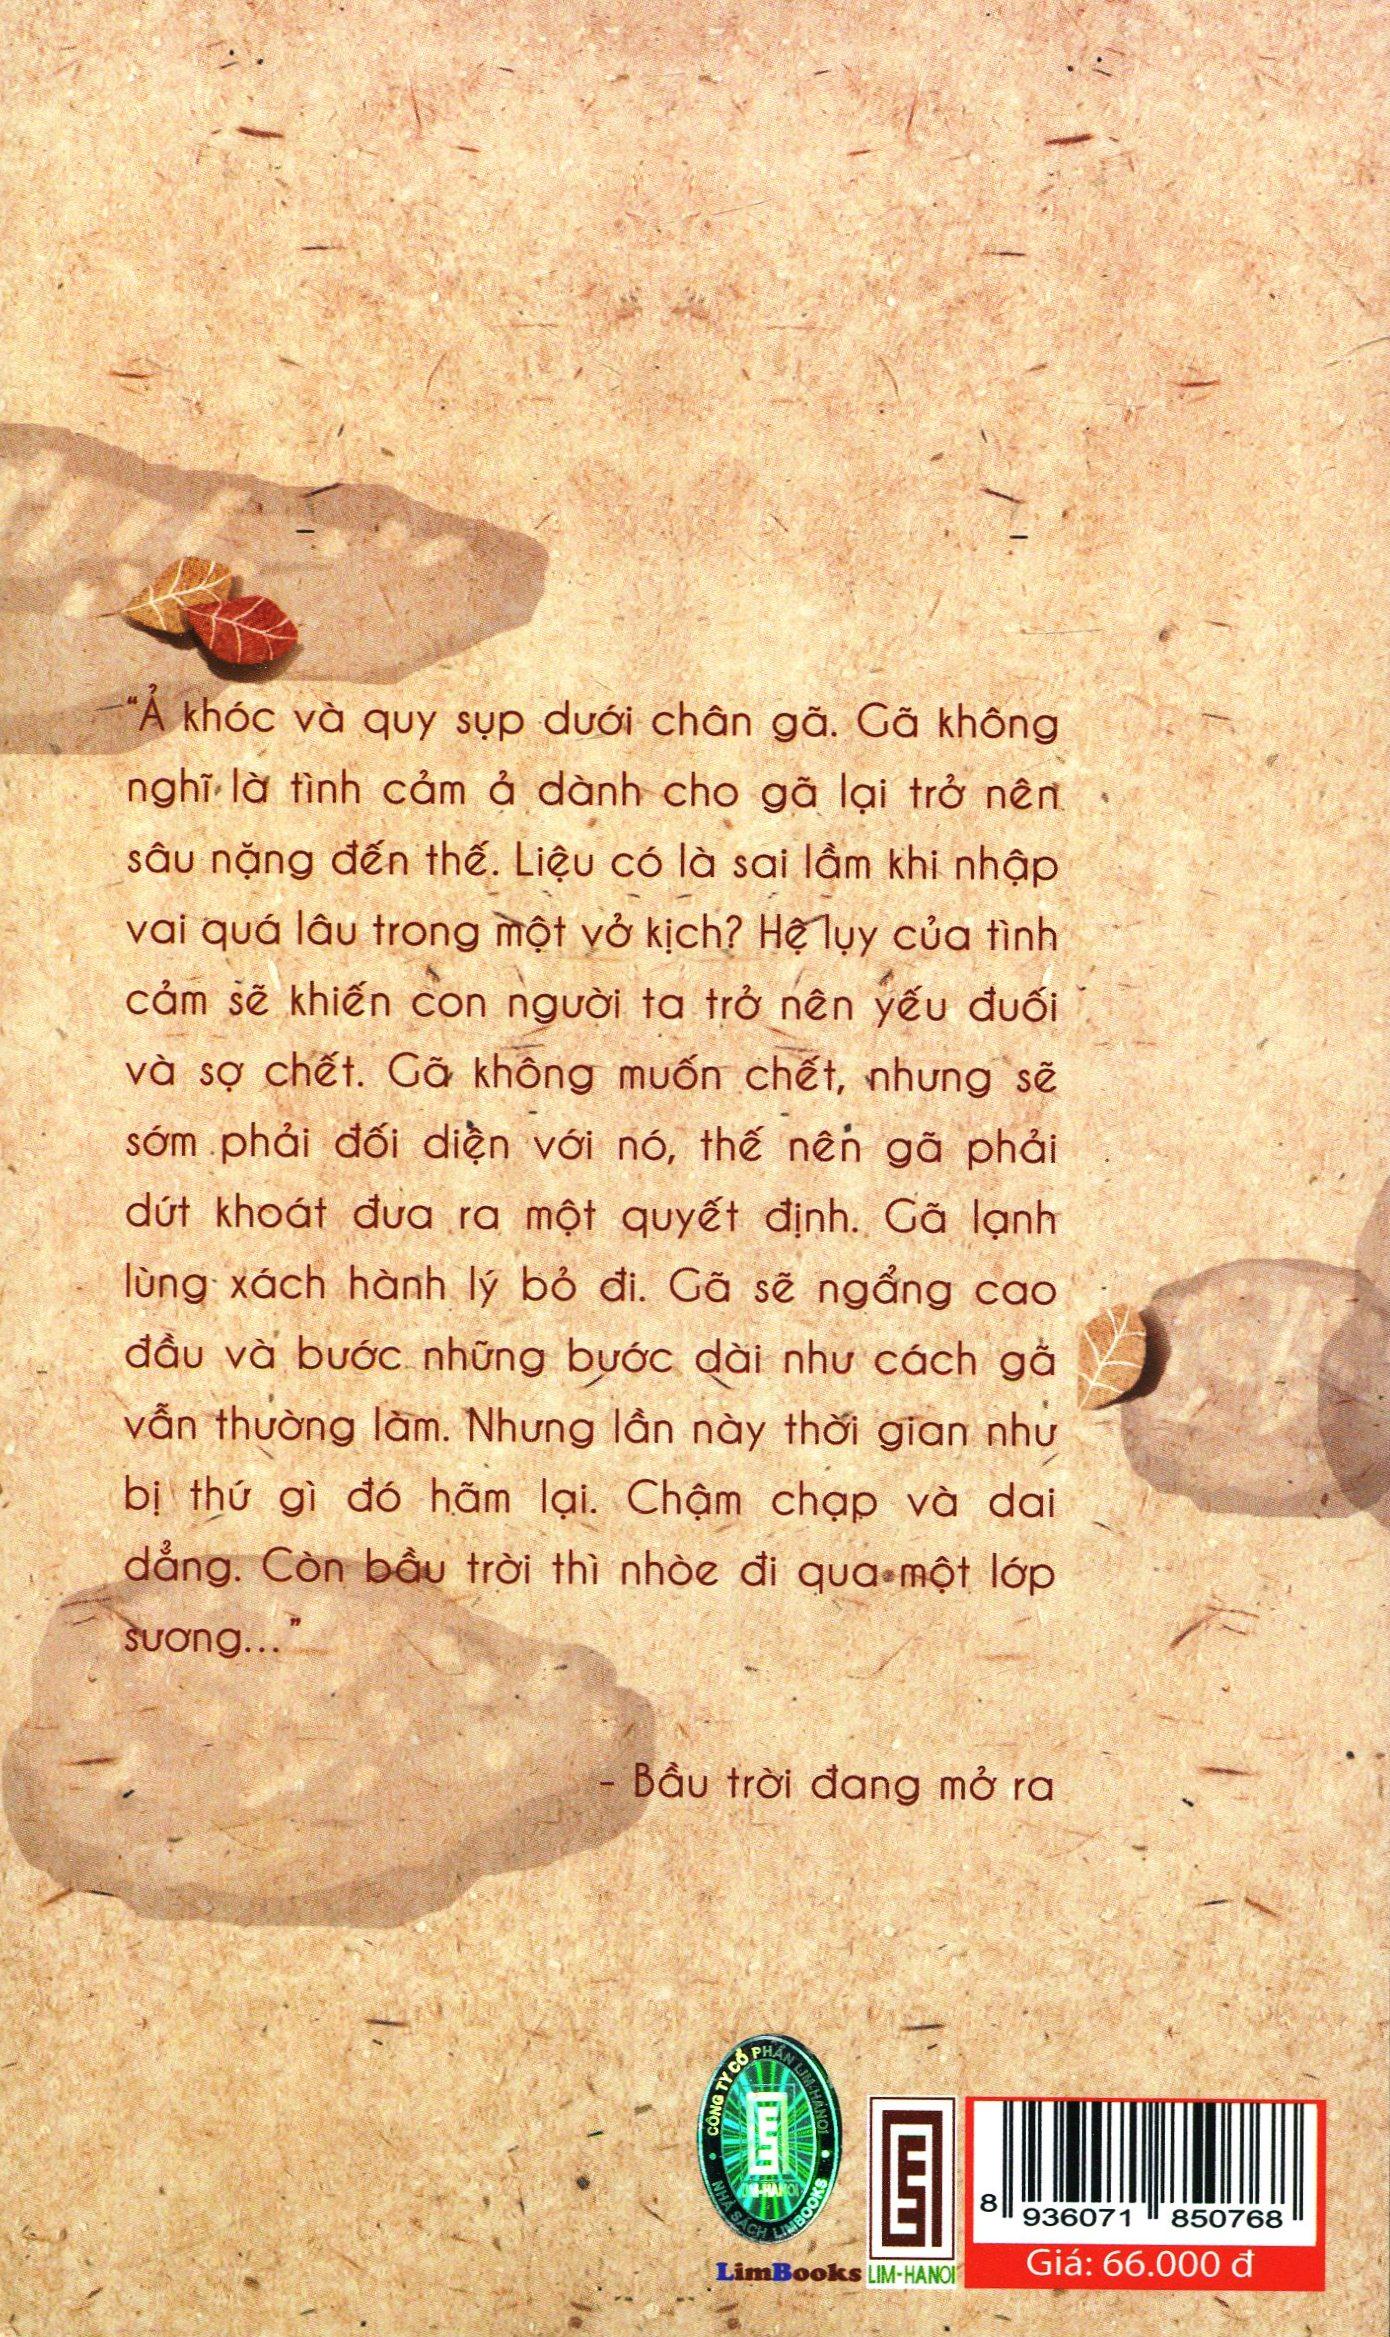 “Ả khóc và quy sụp dưới chân gã. Gã không
nghĩ là tình cảm ả dành cho gã lại trở nên
sâu nặng đến thế. Liệu có là sai lầm khi nhập
vai quá lâu trong một vở kịch? Hệ lụy của tình
cảm sẽ khiến con người ta trở nên yếu đuối
và sợ chết. Gã không muốn chết, nhưng sẽ
sớm phải đối diện với nó, thế nên gã phải
dứt khoát đưa ra một quyết định. Gã lạnh
lùng xách hành lý bỏ đi. Gã sẽ ngẩng cao
đầu và bước những bước dài như cách gã
vẫn thường làm. Nhưng lần này thời gian như
bị thứ gì đó hãm lại. Chậm chạp và dai
dẳng. Còn bầu trời thì nhòe đi qua một lớp
sương...”
- Bầu trời đang mở ra
CÔNG TY CỔ PHẦN LIM-HANOI
LIM-HANOI
NHÀ SÁCH LIMBOOKS
LimBooks
LIM-HANOI
8 936071 850768
Giá: 66.000 đ